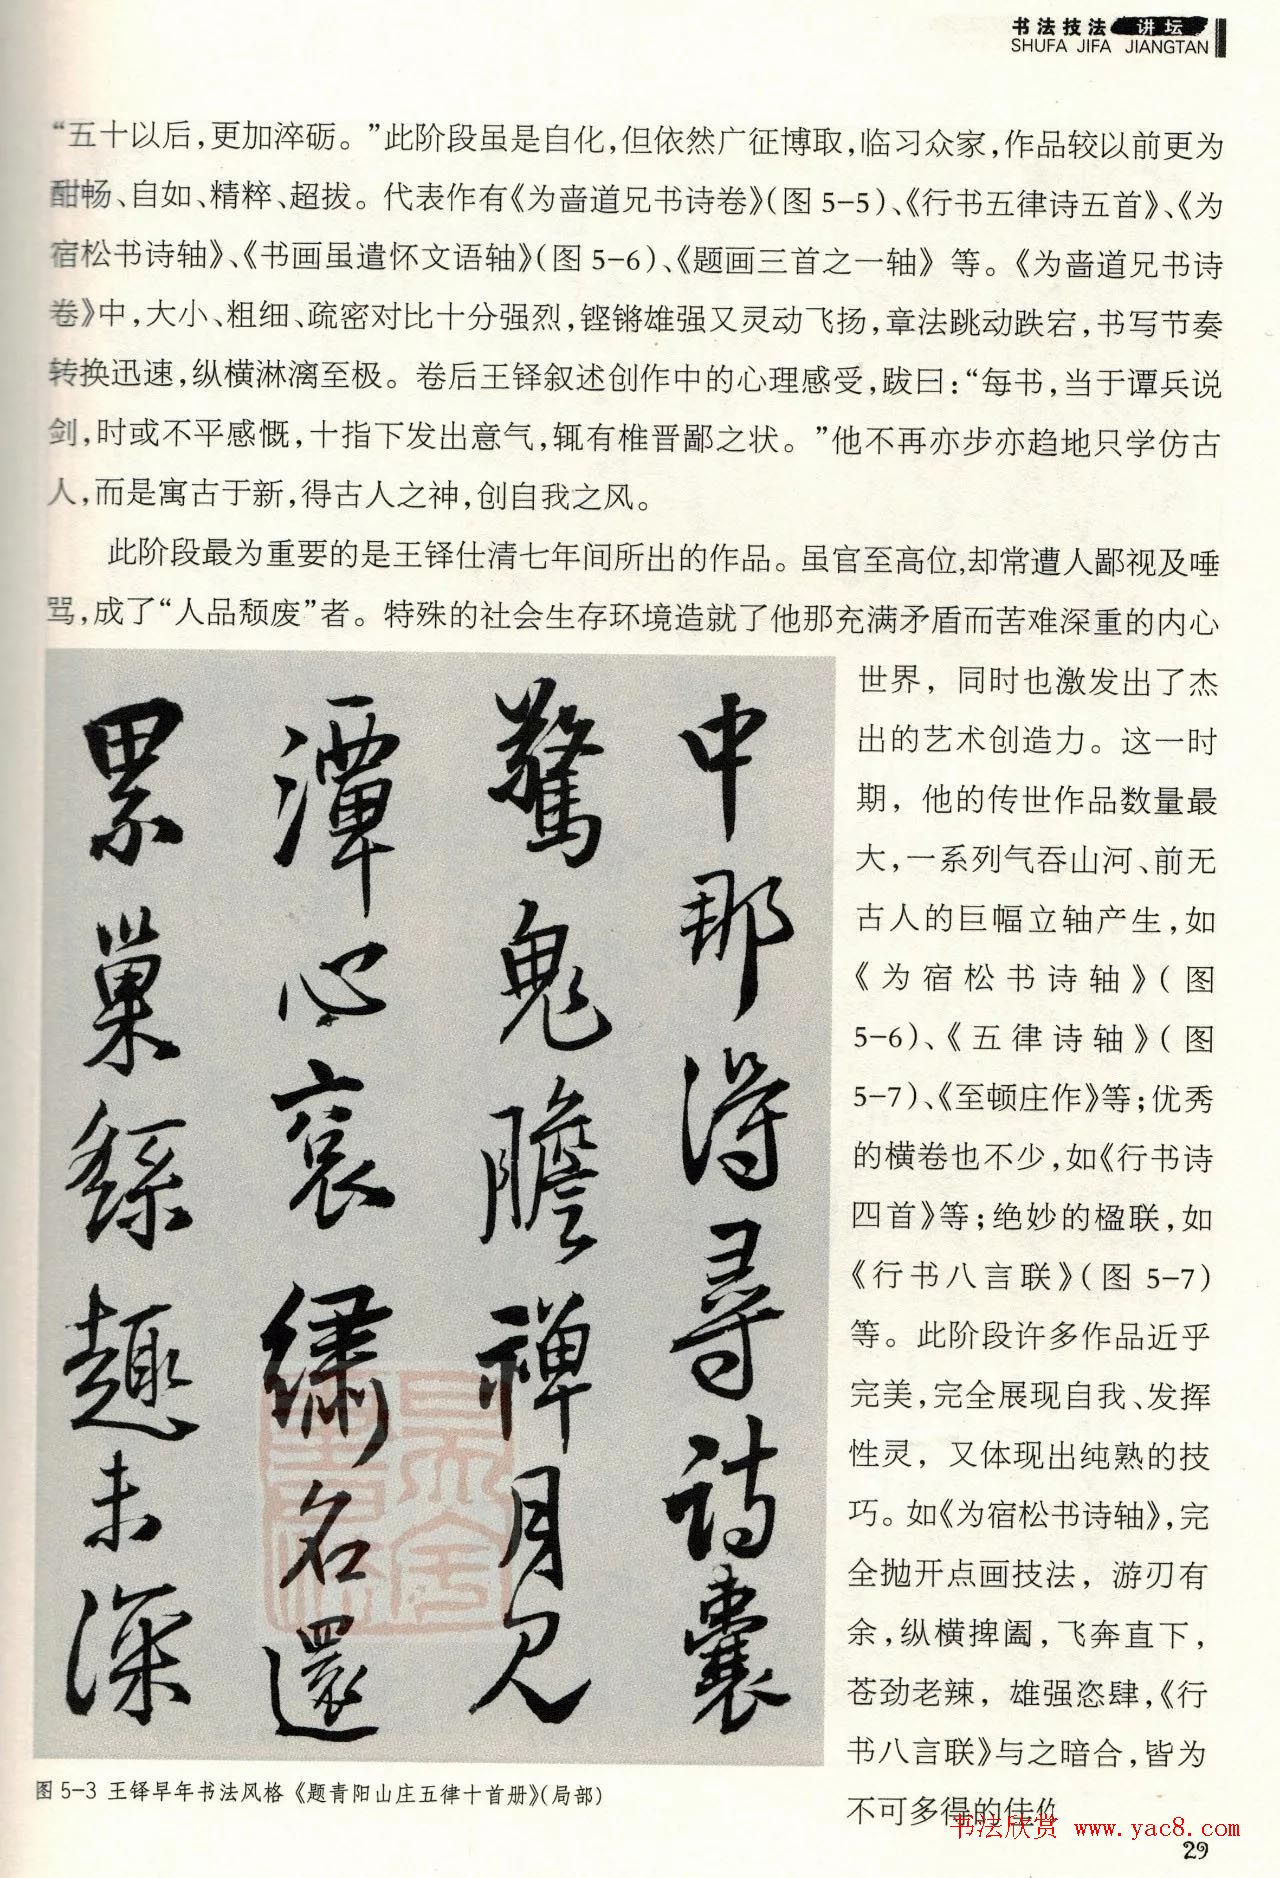 书法技法 讲坛
SHUFA JIFA JIANGTAN
“五十以后，更加淬砺。”此阶段虽是自化，但依然广征博取，临习众家，作品较以前更为
酣畅、自如、精粹、超拔。代表作有《为啬道兄书诗卷》（图5-5）、《行书五律诗五首》、《为
宿松书诗轴》、《书画虽遣怀文语轴》（图5-6）、《题画三首之一轴》等。《为啬道兄书诗
卷》中，大小、粗细、疏密对比十分强烈，铿锵雄强又灵动飞扬，章法跳动跌宕，书写节奏
转换迅速，纵横淋漓至极。卷后王铎叙述创作中的心理感受，跋曰：“每书，当于谭兵说
剑，时或不平感慨，十指下发出意气，辄有椎晋鄙之状。”他不再亦步亦趋地只学仿古
人，而是寓古于新，得古人之神，创自我之风。
此阶段最为重要的是王铎仕清七年间所出的作品。虽官至高位，却常遭人鄙视及唾
骂，成了“人品颓废”者。特殊的社会生存环境造就了他那充满矛盾而苦难深重的内心
世界，同时也激发出了杰
出的艺术创造力。这一时
期，他的传世作品数量最
大，一系列气吞山河、前无
古人的巨幅立轴产生，如
《为宿松书诗轴》（图
5-6）、《五律诗轴》（图
5-7）、《至顿庄作》等；优秀
的横卷也不少，如《行书诗
四首》等；绝妙的楹联，如
《行书八言联》（图5-7）
等。此阶段许多作品近乎
完美，完全展现自我、发挥
性灵，又体现出纯熟的技
巧。如《为宿松书诗轴》，完
全抛开点画技法，游刃有
余，纵横捭阖，飞奔直下，
苍劲老辣，雄强恣肆，《行
书八言联》与之暗合，皆为
不可多得的佳
中那得尋詩囊
驚鬼膽禪月見
潭心哀繡名還
累巢繇趣未深
图5-3 王铎早年书法风格《题青阳山庄五律十首册》（局部）
书法欣赏 www.yac8.com
29